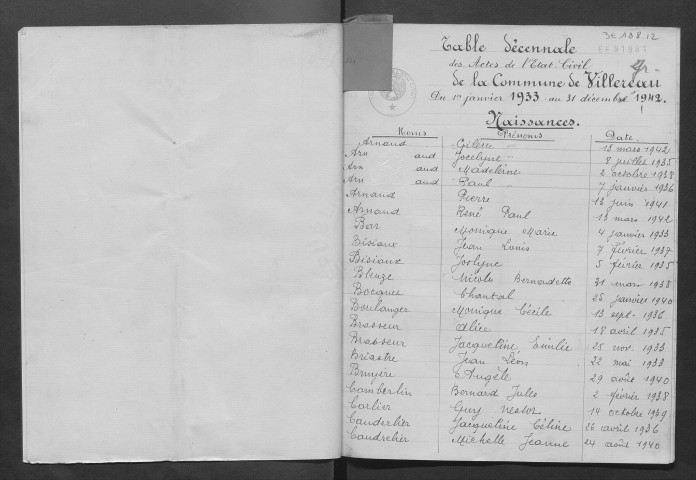 3E 138 12
Table décennale
des Actes de l'Etat-Civil
de la Commune de Villereau
Du 1er janvier 1933 au 31 décembre 1942.
Naissances.
Noms Prénoms Date
Arnaud Gilette 13 mars 1942
Arn aud Jocelyne 8 juillet 1935
Arn aud Madeleine 2 octobre 1938
Arn aud Paul 7 janvier 1936
Arnaud Pierre 13 juin 1941
Arnaud René Paul 13 mars 1942
Bar Monique Marie 4 janvier 1933
Bisiaux Jean Louis 7 février 1937
Bisiaux Joslyne 5 février 1935
Bleuze Nicole Bernadette 31 mars 1938
Bocquet Chantal 25 janvier 1940
Boulanger Monique Cécile 13 sept. 1936
Brasseur Alice 18 avril 1935
Brasseur Jacqueline Emilie 25 nov. 1933
Briastre Jean Léon 22 mai 1933
Bruyère Angèle 29 août 1940
Camberlin Bernard Jules 2 février 1938
Carlier Guy Nestor 14 octobre 1939
Caudrelier Jacqueline Céline 26 avril 1936
Caudrelier Michelle Jeanne 24 août 1940